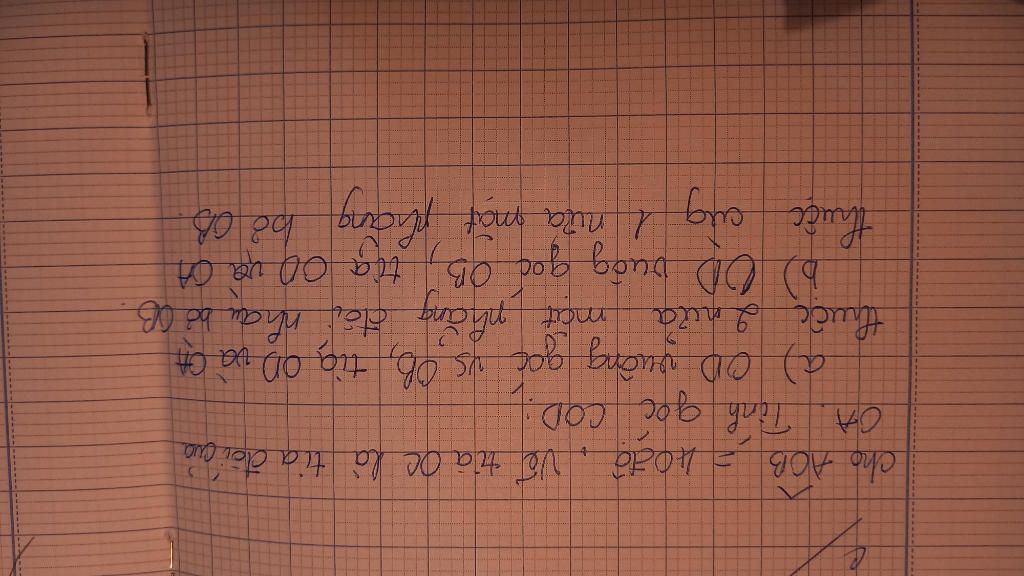 Cho AOB = 40 độ. Vẽ tia OC là tia đối của
OA. Tính góc COD:
a) OD vuông góc vs OB, tia OD và OA
thuộc 2 nửa mặt phẳng đối nhau bờ OB
b) OD vuôg góc OB, tia OD và OA
thuộc cùg 1 nửa mặt phẳng bờ OB.